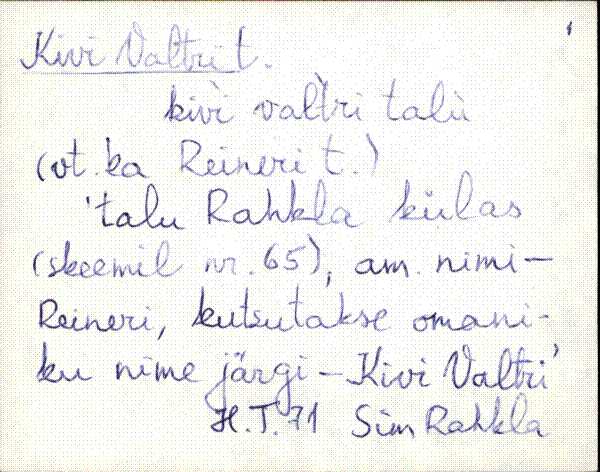 Kivi Valtri t.
kivi val̀tri talù
(vt. ka Reineri t.)
'talu Rahkla külas
(skeemil nr. 65), am. nimi -
Reineri, kutsutakse omani-
ku nime järgi - Kivi Valtri'
H.T. 71 Sim Rahkla